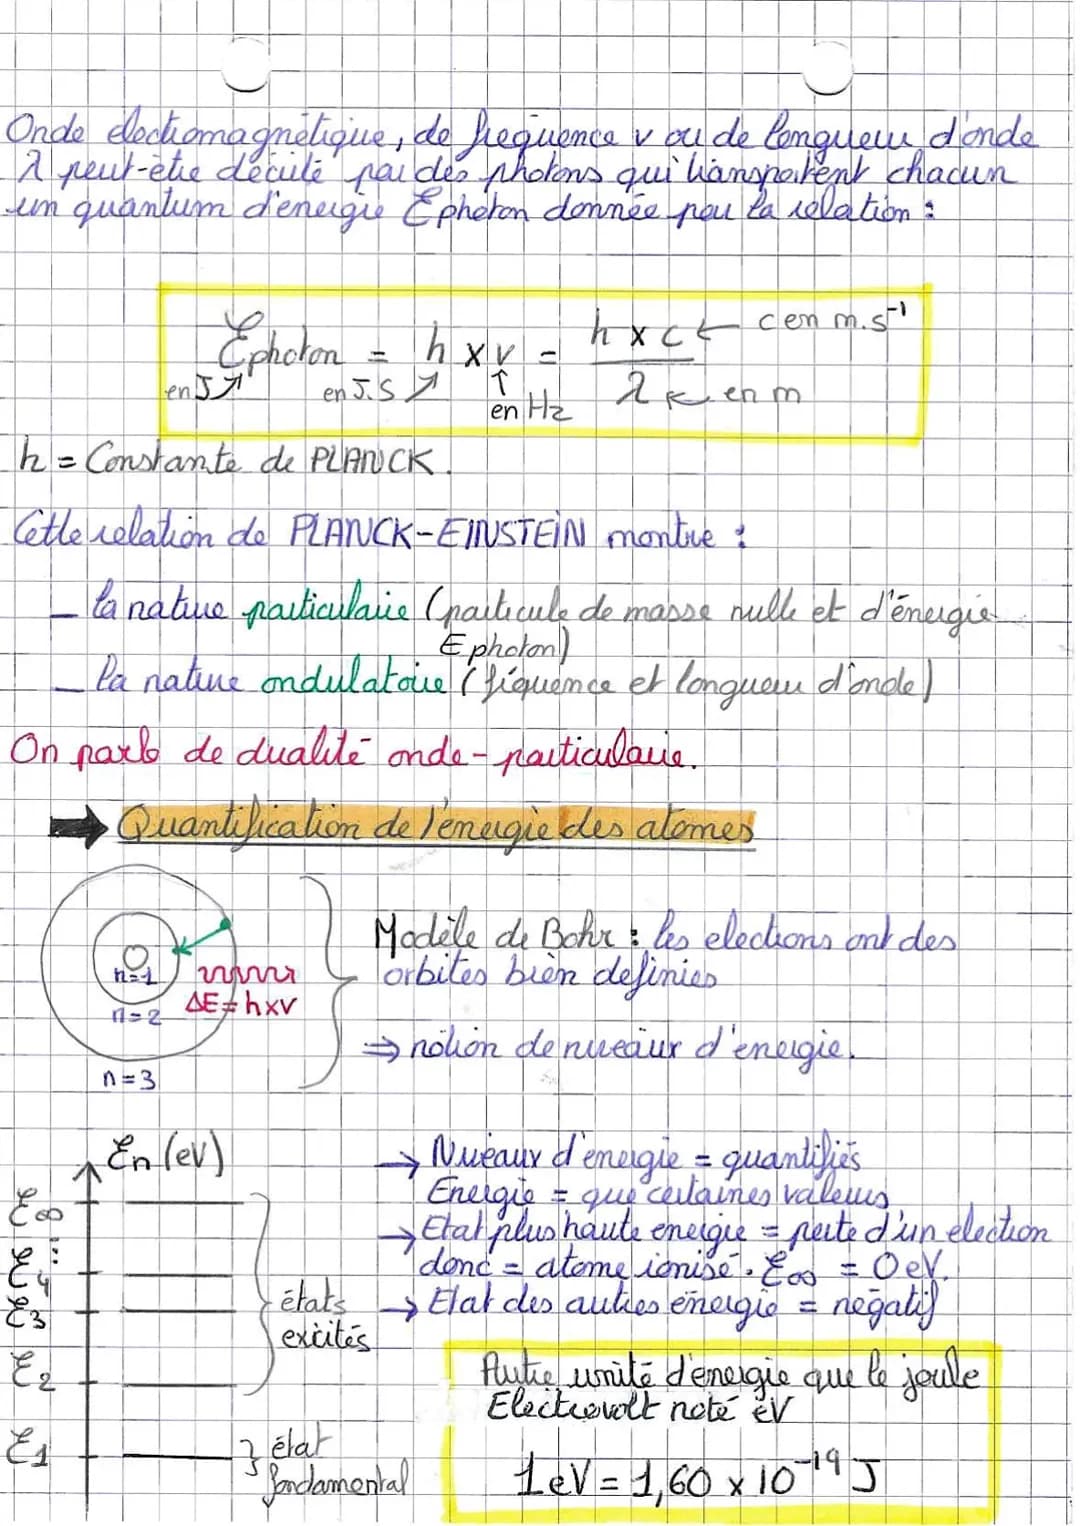 Onde électromagnétique, de fréquence ν ou de longueur d'onde
λ peut-être décrite par des photons qui transportent chacun
un quantum d'énergie Ɛphoton donnée par la relation :
Ɛphoton = h x ν = h x c / λ
← c en m.s⁻¹
en J ↗ en J.S ↗ ↑ en Hz ↖ en m
h = Constante de PLANCK.
Cette relation de PLANCK-EINSTEIN montre :
– la nature particulaire (particule de masse nulle et d'énergie
Ɛphoton)
– la nature ondulatoire (fréquence et longueur d'onde)
On parle de dualité onde-particulaire.
➡ Quantification de l'énergie des atomes
n=1
n=2
n=3
ΔE=hxν
Modèle de Bohr : les électrons ont des
orbites bien définies
⇒ notion de niveaux d'énergie.
Ɛn (eV)
Ɛ∞
...
Ɛ4
Ɛ3
Ɛ2
Ɛ1
états
excités
état
fondamental
→ Niveaux d'énergie = quantifiés
Energie = que certaines valeurs
→ Etat plus haute énergie = perte d'un électron
donc = atome ionisé. Ɛ∞ = 0 eV.
→ Etat des autres énergie = négatif
Autre unité d'énergie que le joule
Electrovolt noté eV
1 eV = 1,60 x 10⁻¹⁹ J